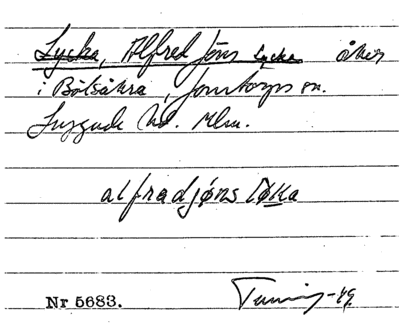 Lycka, Alfred Jöns Lycka åker
i Bölsåkra, Jonstorps sn.
Luggude hd. Mlm.
alfradjøns løKa
Nr 5683.
-49.